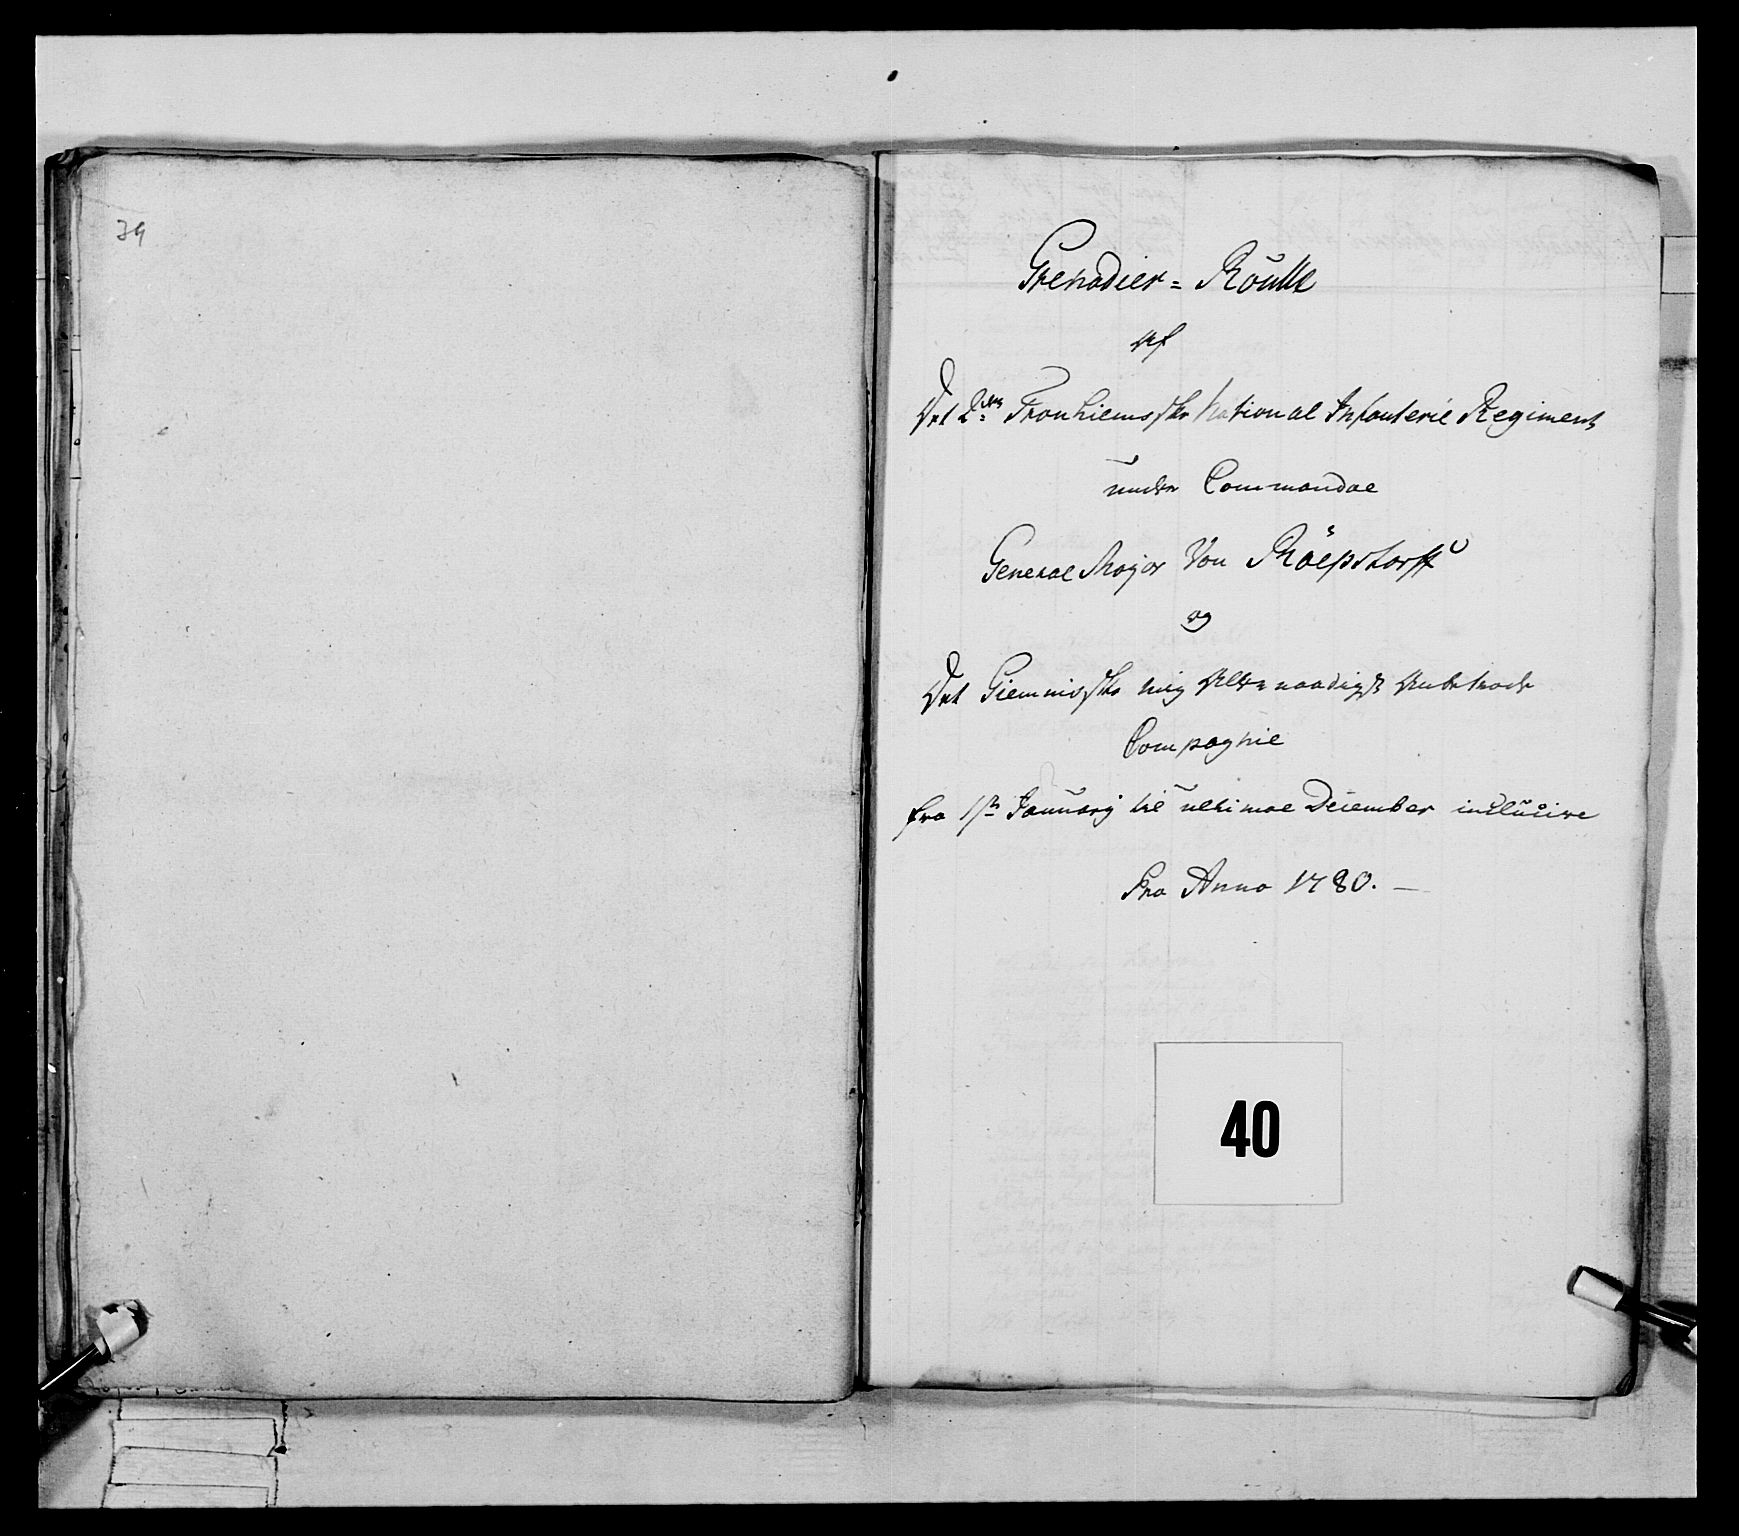 39
Grenadier = Roulle
Af
Det 2det Tronhiemsske National Infanterie Regiment
under Commandae
General Major Von Röepstorff
og
Det Giemnisske mig Allernaadigst Anbetroede
Compagnie
fra 1ste January til ultimae December inclucive
Pro Anno 1780. —
40